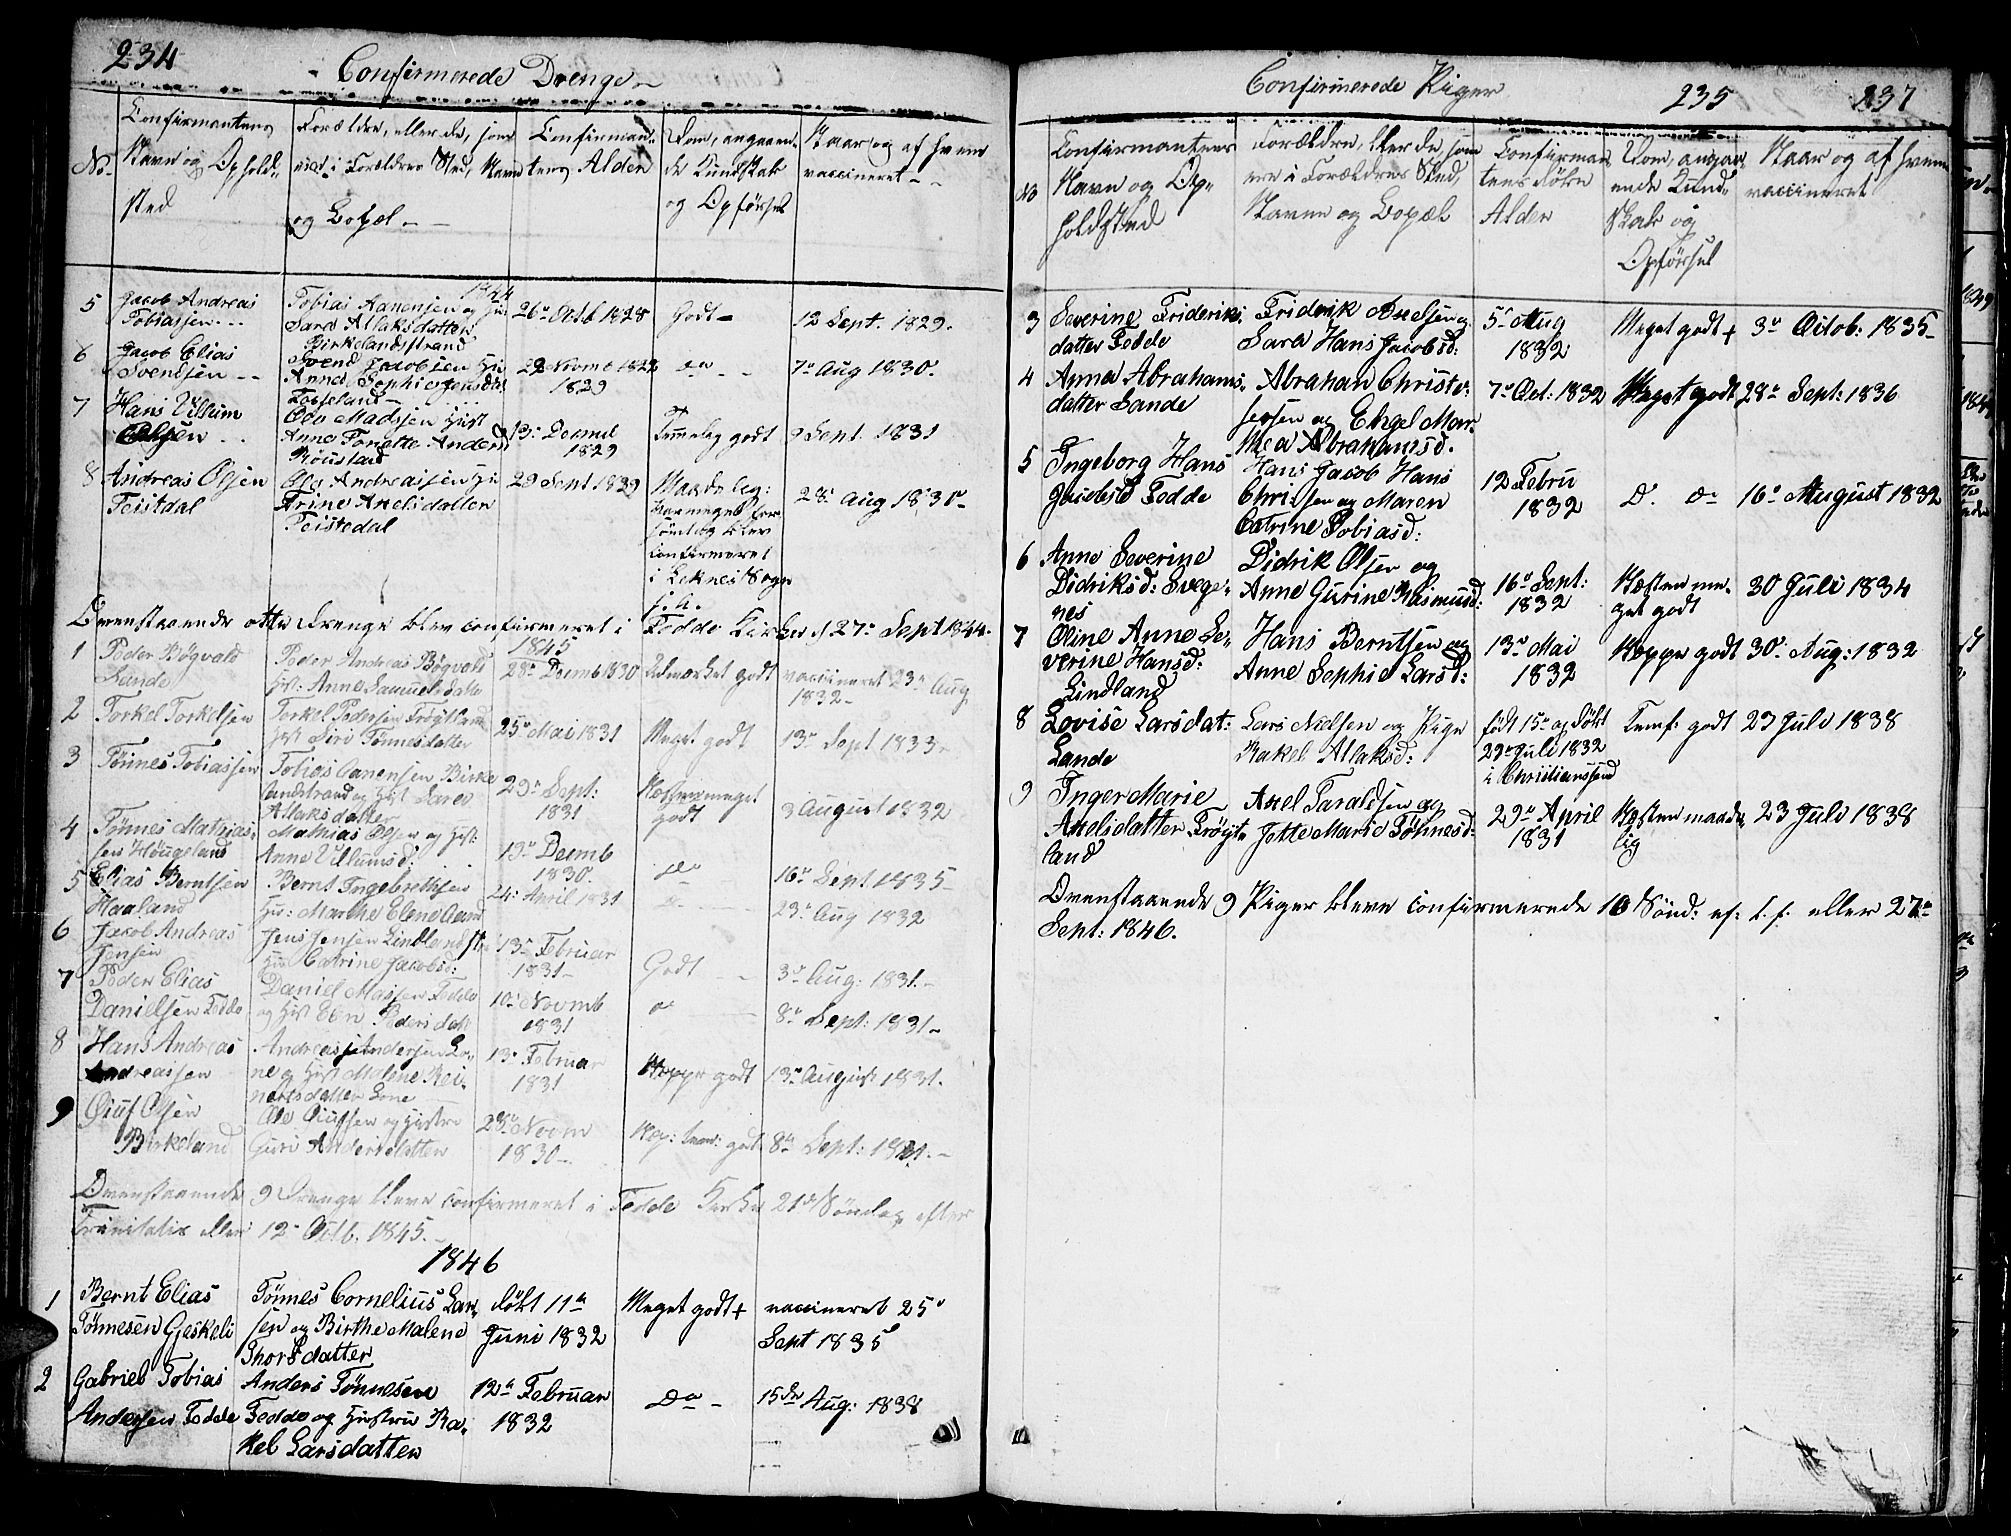 234
Confirmerede Drenge
No.
Confirmantens
Navn og Ophold-
sted
Forældre, eller de, som
ere i Forældres Sted, Navn
og Bopæl
Confirman-
tens Alder
Dom, angaaen-
de Kundskab
og Opførsel
Naar og af hvem
vaccineret
1844
5 Jacob Andreas
Tobiassen
Tobias Aanensen og Hu
Sara Atlaksdatter
Birkelandstrand
26de Octb 1828
Godt
12 Sept. 1829.
6 Jacob Elias
Svendsen
Svend Jacobsen Hu
Anna Sophie Jensdtr
22 Novmb 1828
1829
do
7de Aug 1830.
7 Hans Villum
Olsen
Ole Madsen Hust
Anne Tonette Andersd
Röiseland
13: Decmb
1829
Temmelig godt
9 Sept. 1831
8 Andreas Olsen
Feistdal
Ole Andreassen Hu
Trine Axelsdatter
Feistedal
29 Sept 1829
Maadelig:
har meget for-
sömt og blev
confirmeret
i Liknes Sogn
28: Aug 1830
Ovenstaaende otte Drenge blev confirmeret i Fedde Kirke d 27de Sept 1844.
1845
1 Peder Bögvald
Sunde
Peder Andreas Bögvald
Hst: Anne Samuelsdatt
28de Decmb 1830
Udmærket godt
vaccineret 23de Aug
1832
2 Torkel Torkelsen
Torkel Pedersen Tröytland
Hst Siri Tönnesdatter
25de Mai 1831
Meget godt
13de Sept 1833
3 Tönnes Tobiassen
Tobias Aanensen Birke
landstrand og Hst Sara
Atlaksdatter
29de Sept:
1831
Næsten meget
godt
3 August 1832
4 Tönnes Mathias-
sen Höugeland
Mathias Olsen og Hst
Anne Villumsd:
13de Decmb
1830.
do
16de Sept 1835
5 Elias Berntsen
Haaland
Bernt Ingebrethsen
Hu: Marthe Elene Aand
24: April 1831
do
23de Aug 1832
6 Jacob Andreas
Jensen
Jens Jensen Lindland
Hu Catrine Jacobsd:
13de Februar
1831
Godt
3de Aug: 1831.
7 Peder Elias
Danielsen Fedde
Daniel Madsen Fedde
og Hst Elen Pedersdatt
10de Novmb
1831
do
8de Sept: 1831
8 Hans Andreas
Andreassen
Andreas Andersen Lo-
ne og Hust Malene Rei-
nertsdatter Lone
13de Februar
1831
Neppe godt
13de August 1831.
9 Oluf Olsen
Birkeland
Ole Olufsen og Hustru
Guri Andersdatter
23de Novm
1830
Nep: tem: godt
8de Sept: 1831.
Ovenstaaende 9 Drenge bleve confirmeret i Fedde Kirke 21de Söndag efter
Trinitatis eller 12de Octb. 1845.
1846
1 Bernt Elias
Tönnesen Geskeli
Tönnes Cornelius Lar-
sen og Birthe Malene
Thorsdatter
døbt 11de
Juni 1832
Meget godt +
vaccineret 25de
Sept 1835
2 Gabriel Tobias
Andersen Fedde
Anders Tönnesen
Fedde og Hustru Ra-
kel Larsdatter
12de Februar
1832
Do
15de Aug: 1838
Confirmerede Piger
235
237
No
Confirmantens
Navn og Op-
holdsted
Forældre, eller de, som
ere i Forældres Sted,
Navne og Bopæl
Confirman
tens döbte
Alder
Dom, angaa-
ende Kund-
skab og
Opførsel
Naar og af hvem
vaccineret
3 Severine Frideriks-
datter Fedde
Friderik Axelsen og
Sara Hans Jacobsd:
5de Aug
1832
Meget godt +
3de Octob: 1835
4 Anna Abrahams-
datter Sande
Abraham Christo-
fersen og Engel Mar-
thea Abrahamsd.
7de Oct: 1832
Meget godt
28de Sept: 1836
5 Ingeborg Hans
Jacobsd Fedde
Hans Jacob Hans
Chri- sen og Maren
Catrine Tobiasd:
12 Febru
1832
Do. do
16de August 1832
6 Anne Severine
Didriksd: Svege-
nes
Didrik Olsen og
Anne Gurine Rasmusd:
16de Sept:
1832
Næsten me-
get godt
30 Juli 1834
7 Oline Anne Se-
verine Hansd:
Lindland
Hans Berntsen og
Anne Sophie Larsd:
13de Mai
1832
Neppe godt
30de Aug: 1832
8 Lovise Larsdat:
Sande
Lars Nielsen og Pige
Rakel Atlaksd:
født 15de og døbt
29de Juli 1832
i Christianssand
Temf: godt
23 Juli 1838
9 Inger Marie
Axelsdatter Tröyt-
land
Axel Taraldsen og
Jotte Marie Tönnesd:
29de April
1831
Næsten maade-
lig
23 Juli 1838
Ovenstaaende 9 Piger bleve confirmerede 16 Sönd: ef: t. f: eller 27de
Sept: 1846.